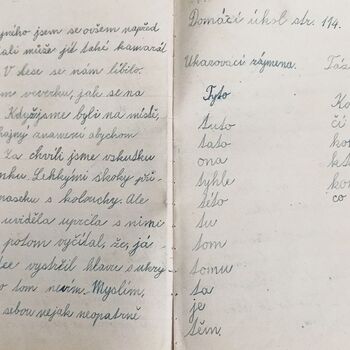 ného jsem se ovšem napřed
ali může jít také kamarád
V lese se nám líbilo.
me veverku, jak se na
Když jsme byli na místě,
hajný znamení abychom
Za chvíli jsme vskutku
nku. Lehkými skoky při-
maseku s kolouchy. Ale
uviděla uprcla s nimi
potom vyčítal, že já
vystrčil hlavu s ukry
o tom nevím. Myslím,
sebou nějak neopatrně
Domácí úkol str. 114.
Ukazovací zájmena.
Táz
Tyto
Ko
tuto
čí
tato
kom
ona
kt
tyhle
kom
této
co
tu
tom
tomu
ta
je
těm